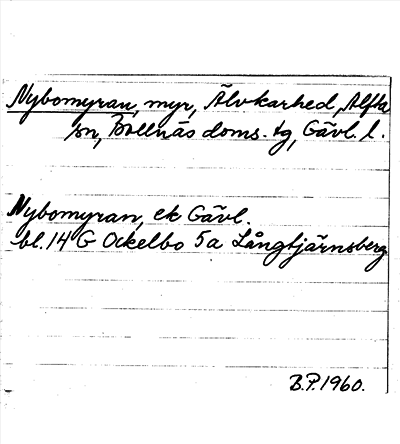 Nybomyran, myr, Älvkarhed, Alfta
sn, Bollnäs doms. tg, Gävl. l.
Nybomyran, ek Gävl.
bl. 14 G Ockelbo 5a Långtjärnsberg
B.P. 1960.